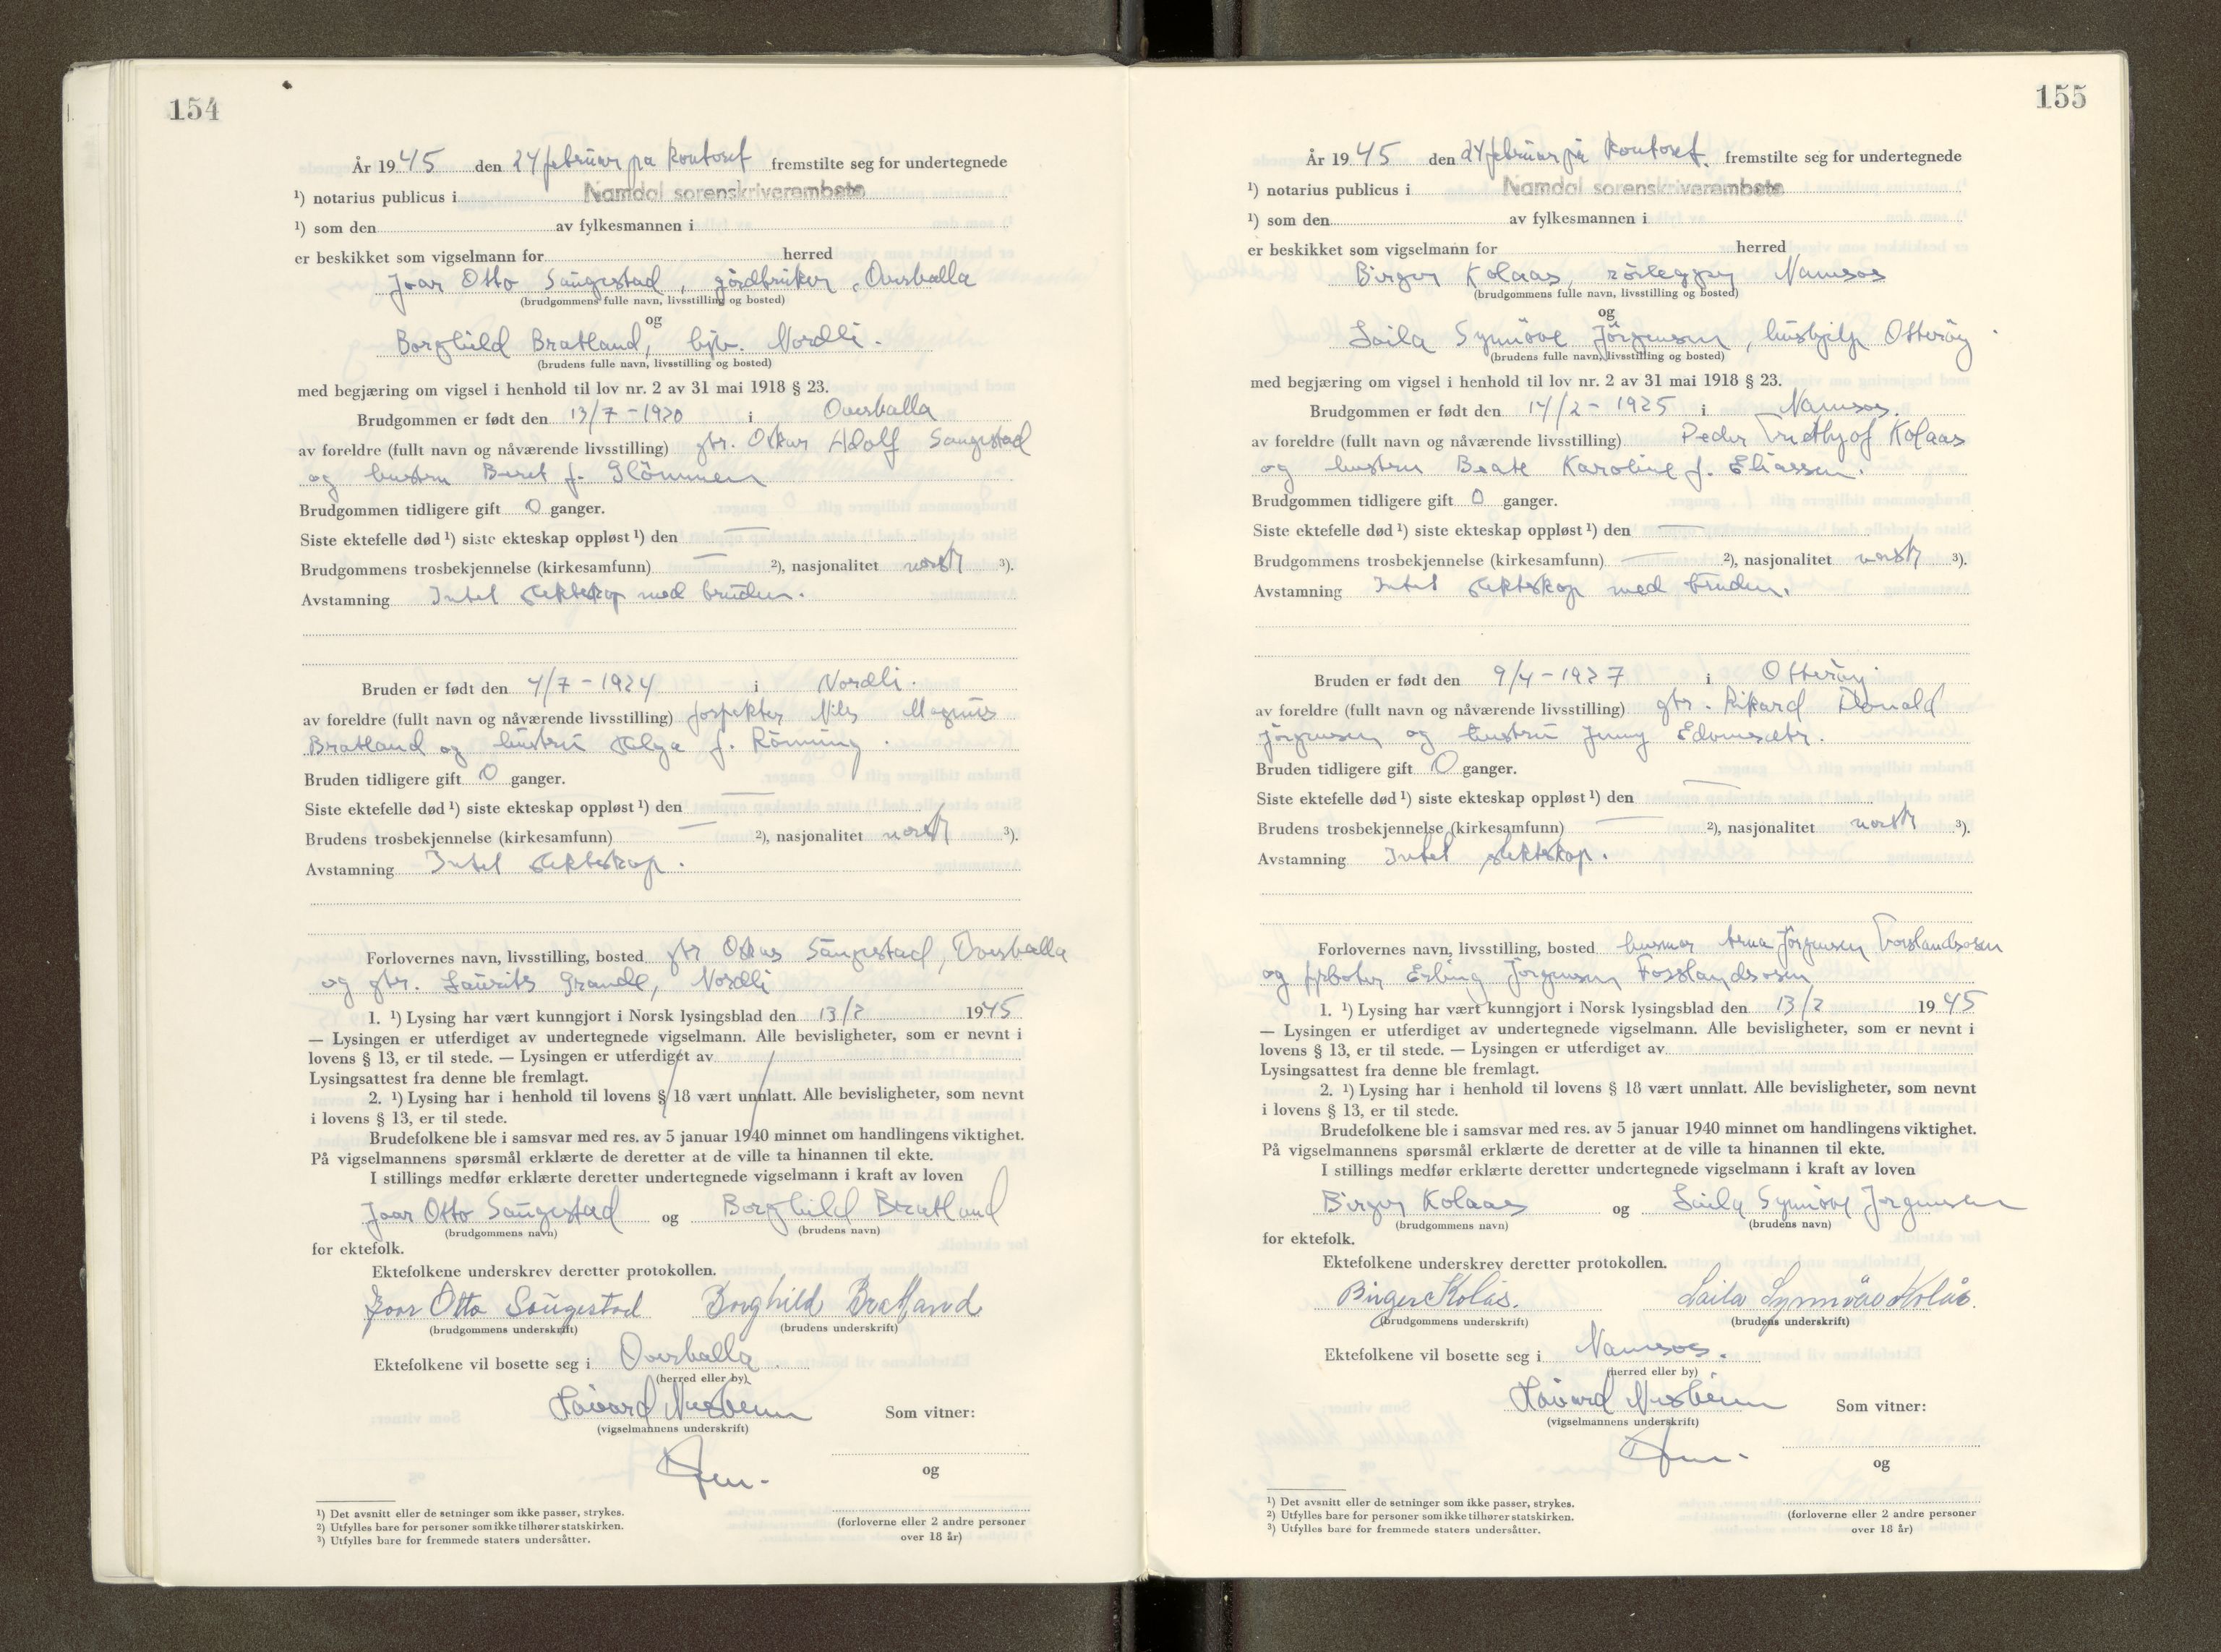 154
År 1945 den 24 februar på kontoret fremstilte seg for undertegnede
¹) notarius publicus i Namdal sorenskriverembete
¹) som den av fylkesmannen i
er beskikket som vigselmann for herred
Ivar Otto Saugestad, gårdbruker, Overhalla
(brudgommens fulle navn, livsstilling og bosted)
og
Borghild Bratland, hjv. Nordli.
(brudens fulle navn, livsstilling og bosted)
med begjæring om vigsel i henhold til lov nr. 2 av 31 mai 1918 § 23.
Brudgommen er født den 13/7 - 1920 i Overhalla
av foreldre (fullt navn og nåværende livsstilling) gbr. Oskar Adolf Saugestad
og hustru Beret f. Glömmen
Brudgommen tidligere gift 0 ganger.
Siste ektefelle død ¹) siste ekteskap oppløst ¹) den —
Brudgommens trosbekjennelse (kirkesamfunn) — ²), nasjonalitet norsk ³).
Avstamning Intet slektskap med bruden.
Bruden er født den 4/7 - 1924 i Nordli.
av foreldre (fullt navn og nåværende livsstilling) Nils Magnus
Bratland og hustru Helga f. Rönning.
Bruden tidligere gift 0 ganger.
Siste ektefelle død ¹) siste ekteskap oppløst ¹) den —
Brudens trosbekjennelse (kirkesamfunn) — ²), nasjonalitet norsk ³).
Avstamning Intet slektskap.
Forlovernes navn, livsstilling, bosted gbr Oskar Saugestad, Overhalla
og gbr. Laurits Grande, Nordli
1. ¹) Lysing har vært kunngjort i Norsk lysingsblad den 13/2 1945
— Lysingen er utferdiget av undertegnede vigselmann. Alle bevisligheter, som er nevnt i
lovens § 13, er til stede. — Lysingen er utferdiget av
Lysingsattest fra denne ble fremlagt.
2. ¹) Lysing har i henhold til lovens § 18 vært unnlatt. Alle bevisligheter, som nevnt
i lovens § 13, er til stede.
Brudefolkene ble i samsvar med res. av 5 januar 1940 minnet om handlingens viktighet.
På vigselmannens spørsmål erklærte de deretter at de ville ta hinannen til ekte.
I stillings medfør erklærte deretter undertegnede vigselmann i kraft av loven
Ivar Otto Saugestad og Borghild Bratland
(brudgommens navn) (brudens navn)
for ektefolk.
Ektefolkene underskrev deretter protokollen.
Ivar Otto Saugestad Borghild Bratland
(brudgommens underskrift) (brudens underskrift)
Ektefolkene vil bosette seg i Overhalla.
(herred eller by)
Håvard Som vitner:
(vigselmannens underskrift)
og
¹) Det avsnitt eller de setninger som ikke passer, strykes.
²) Utfylles bare for personer som ikke tilhører statskirken.
³) Utfylles bare for fremmede staters undersåtter.
(forloverne eller 2 andre personer
over 18 år)
155
År 1945 den 24 februar på kontoret. fremstilte seg for undertegnede
¹) notarius publicus i Namdal sorenskriverembete
¹) som den av fylkesmannen i
er beskikket som vigselmann for herred
Birger Kolaas, rörlegger Namsos
(brudgommens fulle navn, livsstilling og bosted)
og
Laila Synnöve Jörgensen, hushjelp Otteröy.
(brudens fulle navn, livsstilling og bosted)
med begjæring om vigsel i henhold til lov nr. 2 av 31 mai 1918 § 23.
Brudgommen er født den 14/2 - 1925 i Namsos.
av foreldre (fullt navn og nåværende livsstilling) Peder Fridthjof Kolaas
og hustru Beate Karoline f. Eliassen.
Brudgommen tidligere gift 0 ganger.
Siste ektefelle død ¹) siste ekteskap oppløst ¹) den —
Brudgommens trosbekjennelse (kirkesamfunn) — ²), nasjonalitet norsk ³).
Avstamning Intet slektskap med bruden.
Bruden er født den 9/4 - 1927 i Otteröy.
av foreldre (fullt navn og nåværende livsstilling) gbr. Rikard Donald
Jörgensen og hustru Jenny
Bruden tidligere gift 0 ganger.
Siste ektefelle død ¹) siste ekteskap oppløst ¹) den —
Brudens trosbekjennelse (kirkesamfunn) — ²), nasjonalitet norsk ³).
Avstamning Intet slektskap.
Forlovernes navn, livsstilling, bosted husmor Arna Jörgensen Fosslandsosen
og Erling Jörgensen Fosslandsosen
1. ¹) Lysing har vært kunngjort i Norsk lysingsblad den 13/2 1945
— Lysingen er utferdiget av undertegnede vigselmann. Alle bevisligheter, som er nevnt i
lovens § 13, er til stede. — Lysingen er utferdiget av
Lysingsattest fra denne ble fremlagt.
2. ¹) Lysing har i henhold til lovens § 18 vært unnlatt. Alle bevisligheter, som nevnt
i lovens § 13, er til stede.
Brudefolkene ble i samsvar med res. av 5 januar 1940 minnet om handlingens viktighet.
På vigselmannens spørsmål erklærte de deretter at de ville ta hinannen til ekte.
I stillings medfør erklærte deretter undertegnede vigselmann i kraft av loven
Birger Kolaas og Laila Synnöve Jörgensen
(brudgommens navn) (brudens navn)
for ektefolk.
Ektefolkene underskrev deretter protokollen.
Birger Kolås. Laila Synnöve Kolås.
(brudgommens underskrift) (brudens underskrift)
Ektefolkene vil bosette seg i Namsos.
(herred eller by)
Håvard Som vitner:
(vigselmannens underskrift)
og
¹) Det avsnitt eller de setninger som ikke passer, strykes.
²) Utfylles bare for personer som ikke tilhører statskirken.
³) Utfylles bare for fremmede staters undersåtter.
(forloverne eller 2 andre personer
over 18 år)